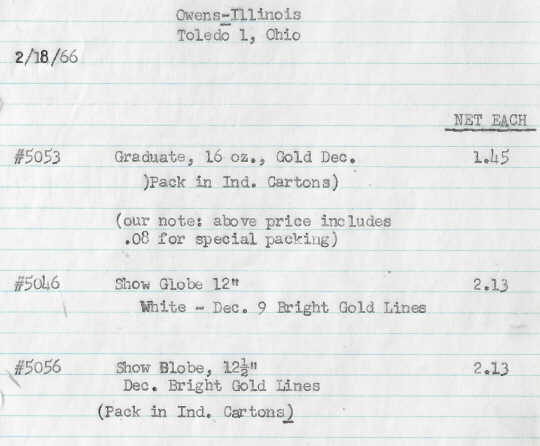 Owens-Illinois
Toledo 1, Ohio
2/18/66
NET EACH
#5053 Graduate, 16 oz., Gold Dec. 1.45
)Pack in Ind. Cartons)
(our note: above price includes
.08 for special packing)
#5046 Show Globe 12" 2.13
White - Dec. 9 Bright Gold Lines
#5056 Show Blobe, 12½" 2.13
Dec. Bright Gold Lines
(Pack in Ind. Cartons)